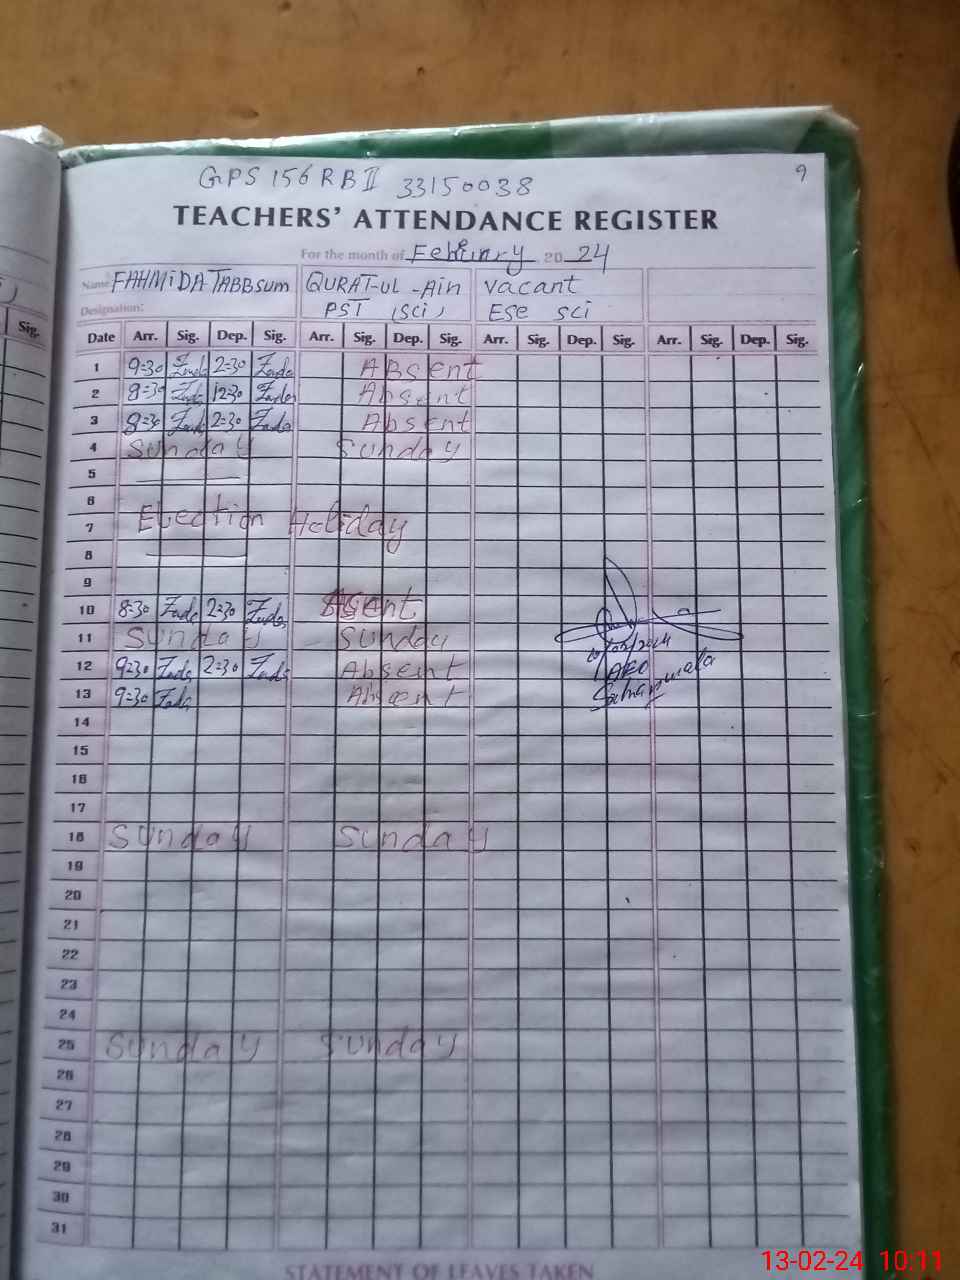 9
GPS 156 RB II 33150038
TEACHERS' ATTENDANCE REGISTER
For the month of February 20 24
Name FAHMIDA TABBSUM QURAT-UL-Ain Vacant
Designation: PST (Sci) Ese Sci
Sig. Date Arr. Sig. Dep. Sig. Arr. Sig. Dep. Sig. Arr. Sig. Dep. Sig. Arr. Sig. Dep. Sig.
1 9=30 2=30 Absent
2 8=30 12=30 Absent
3 8=30 2=30 Absent
4 Sunday Sunday
5
6
7 Election Holiday
8
9
10 8=30 2=30 Absent
11 Sunday Sunday
12 9=30 2=30 Absent
13 9=30 Absent
10/02/2024
AEO
14
15
16
17
18 Sunday Sunday
19
20
21
22
23
24
25 Sunday Sunday
26
27
28
29
30
31
STATEMENT OF LEAVES TAKEN
13-02-24 10:11